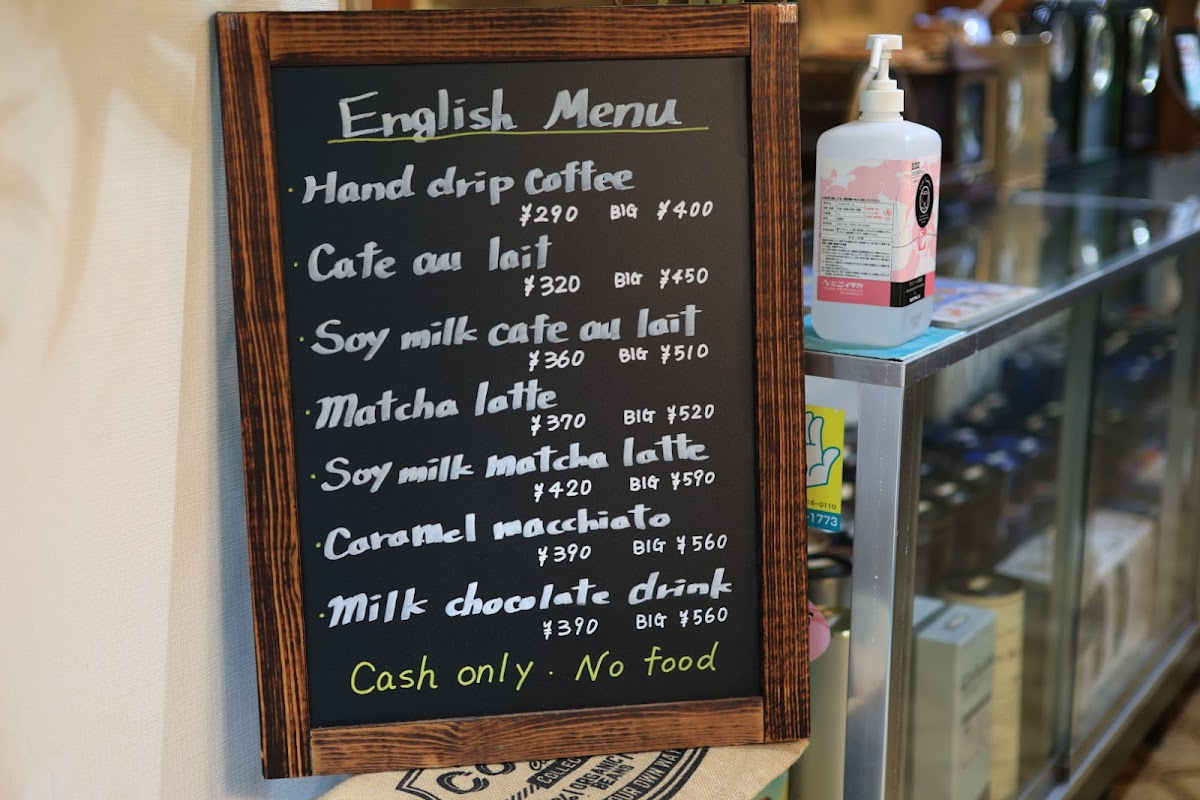 English Menu
· Hand drip coffee
¥290 BIG ¥400
· Cafe au lait
¥320 BIG ¥450
· Soy milk cafe au lait
¥360 BIG ¥510
· Matcha latte
¥370 BIG ¥520
· Soy milk matcha latte
¥420 BIG ¥590
· Caramel macchiato
¥390 BIG ¥560
· Milk chocolate drink
¥390 BIG ¥560
Cash only · No food
ニイタカ
-1773
COLLEC
ORGANIC
BEANS
OUR OWN WAY